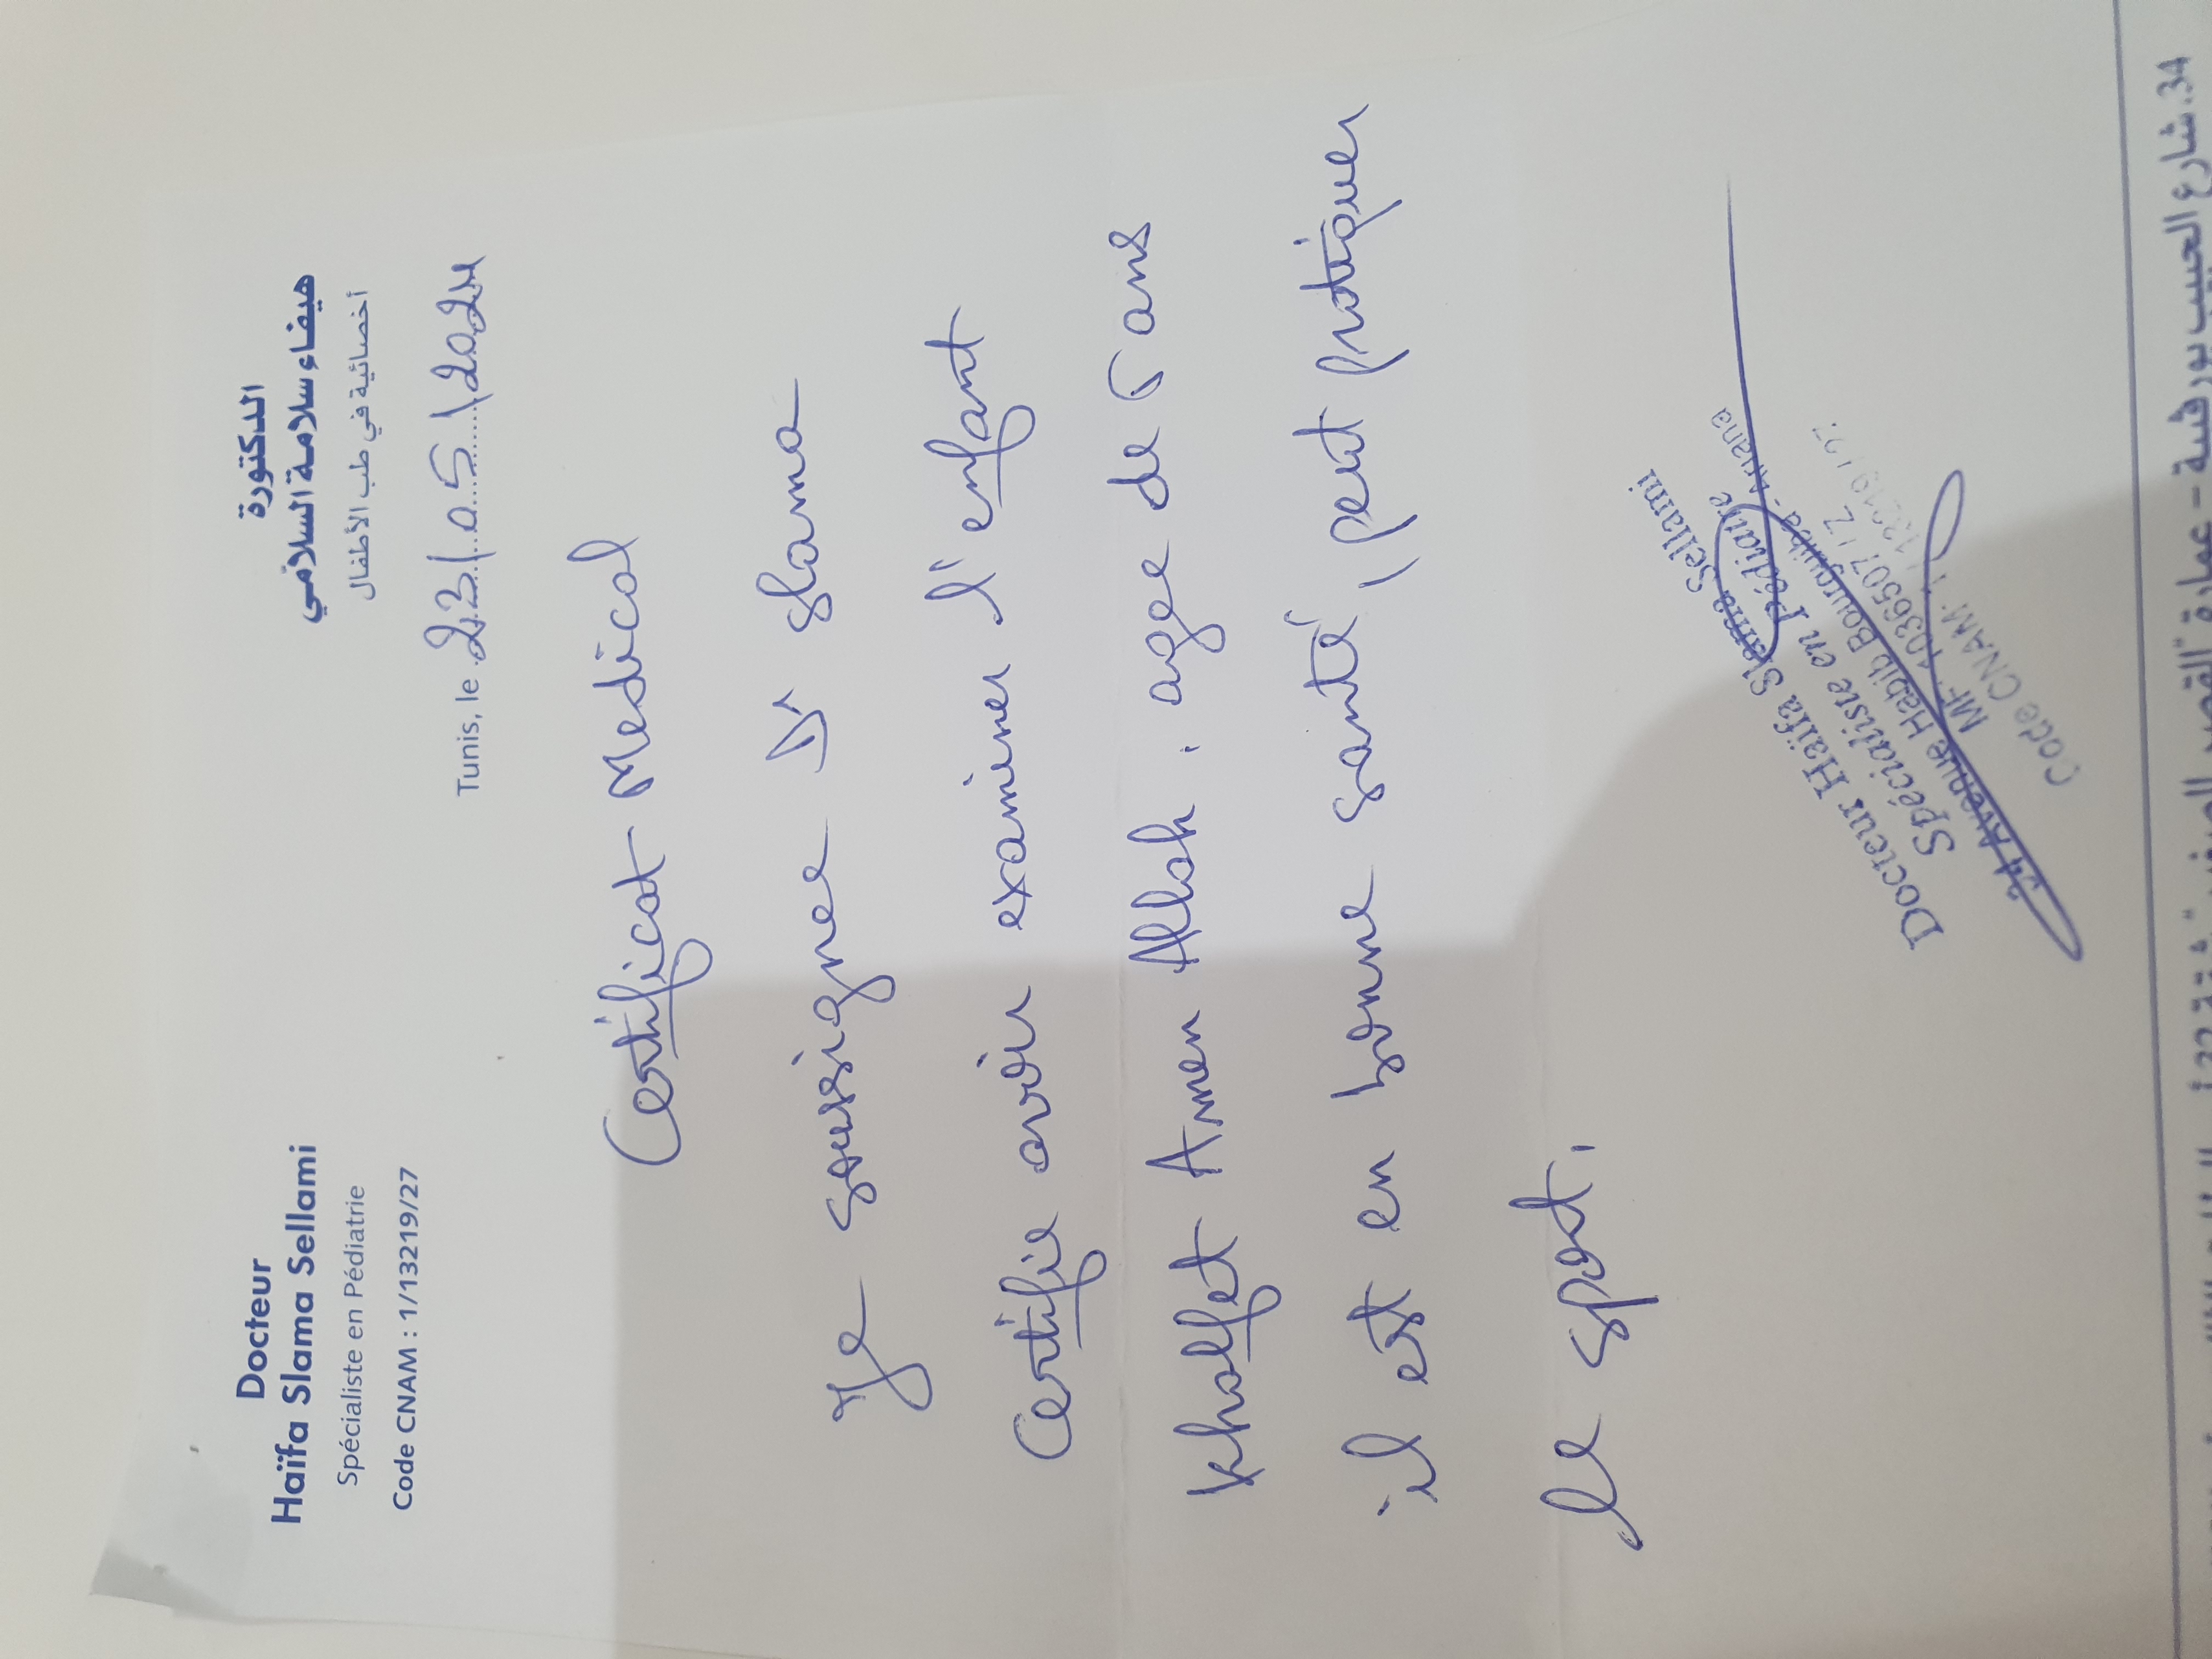 Docteur
Haïfa Slama Sellami
Spécialiste en Pédiatrie
Code CNAM : 1/13219/27
الدكتورة
هيفاء سلامة السلامي
أخصائية في طب الأطفال
Tunis, le 23/05/2024
Certificat Medical
Je soussignee Dr Slama
Certifie avoir examiner l'enfant
Khalfet Amen Allah : age de 5 ans
il est en bonne santé, peut pratiquer
le sport.
Docteur Haïfa Slama Sellami
Spécialiste en Pédiatrie
34 Avenue Habib Bourguiba - Ariana
MF 1036507 / Z
Code CNAM 1 / 13219 / 27
34، شارع الحبيب بورقيبة - عمارة "القصر